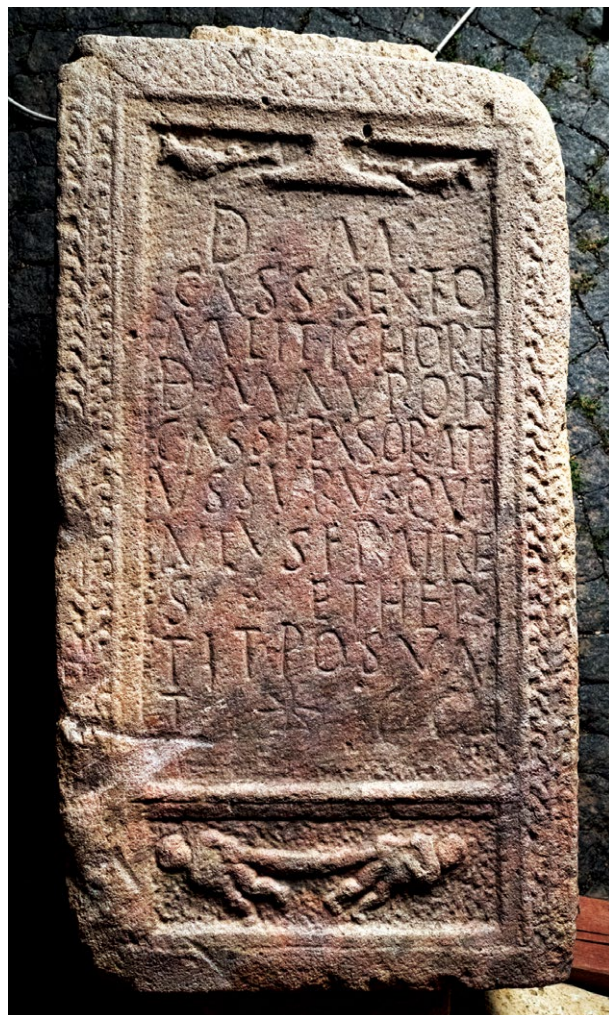 D M
CASS SEXTO
MILITI CHORT
Đ · MAVROR
CASS FENSORAT
VS SVRVS QVI
NTVS FRATRE
S ET HER
TIT · POSVA
T